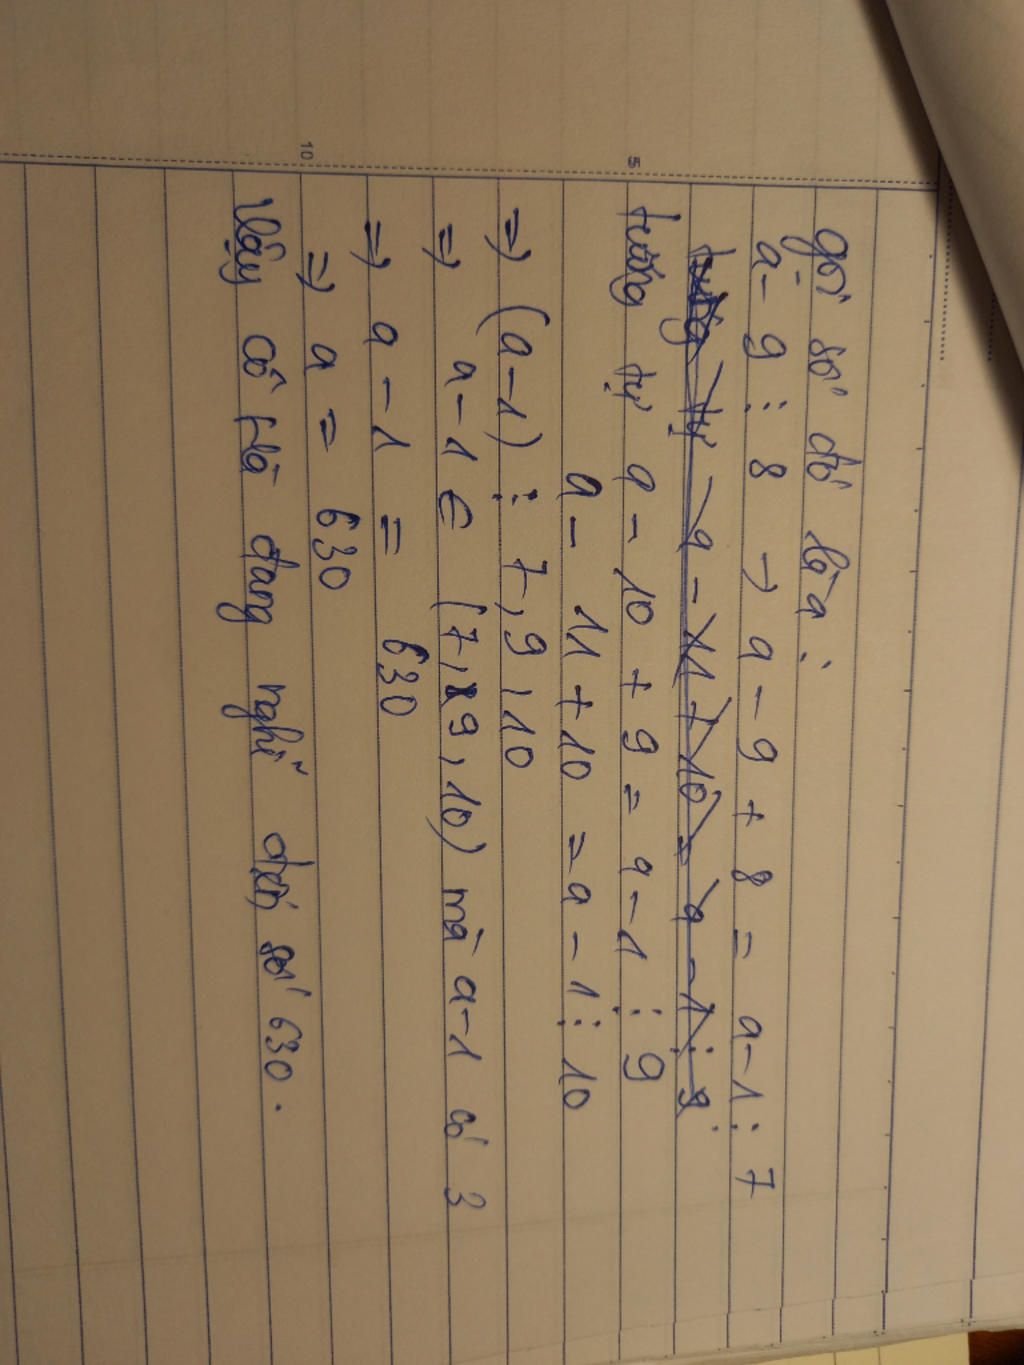 gọi số đó là a :
a - 9 ⋮ 8 → a - 9 + 8 = a - 1 ⋮ 7
5
tương tự a - 11 + 10 = a - 1 ⋮ 9
tương tự a - 10 + 9 = a - 1 ⋮ 9
a - 11 + 10 = a - 1 ⋮ 10
=> (a - 1) ⋮ 7, 9, 10
=> a - 1 ∈ (7, 9, 10) mà a - 1 có 3
=> a - 1 = 630
10
=> a = 630
Vậy cô Hà đang nghĩ đến số 630.